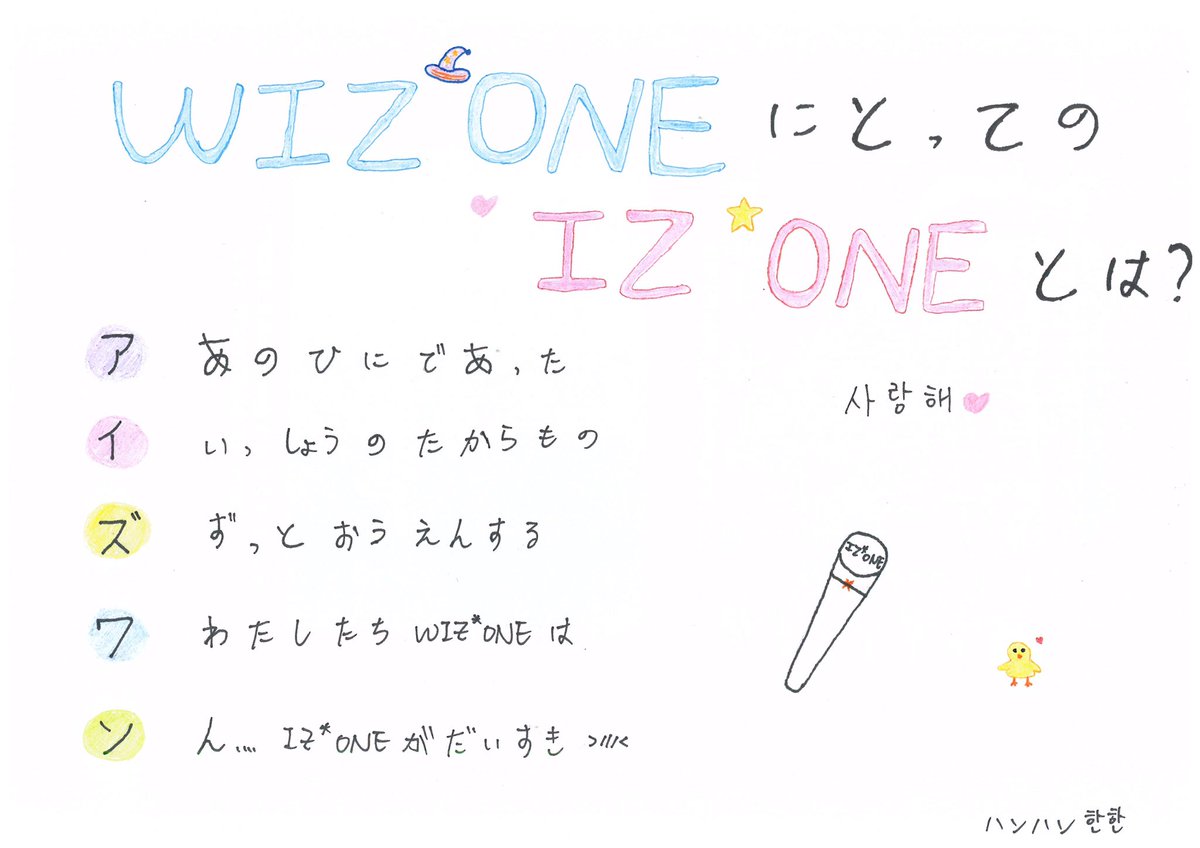 WIZ*ONE にとっての
IZ*ONE とは?
ア あのひにであった
사랑해
イ いっしょうのたからもの
ズ ずっとおうえんする
IZ*ONE
ワ わたしたち WIZ*ONE は
ン ん.... IZ*ONE がだいすき >////<
ハンハン 한한